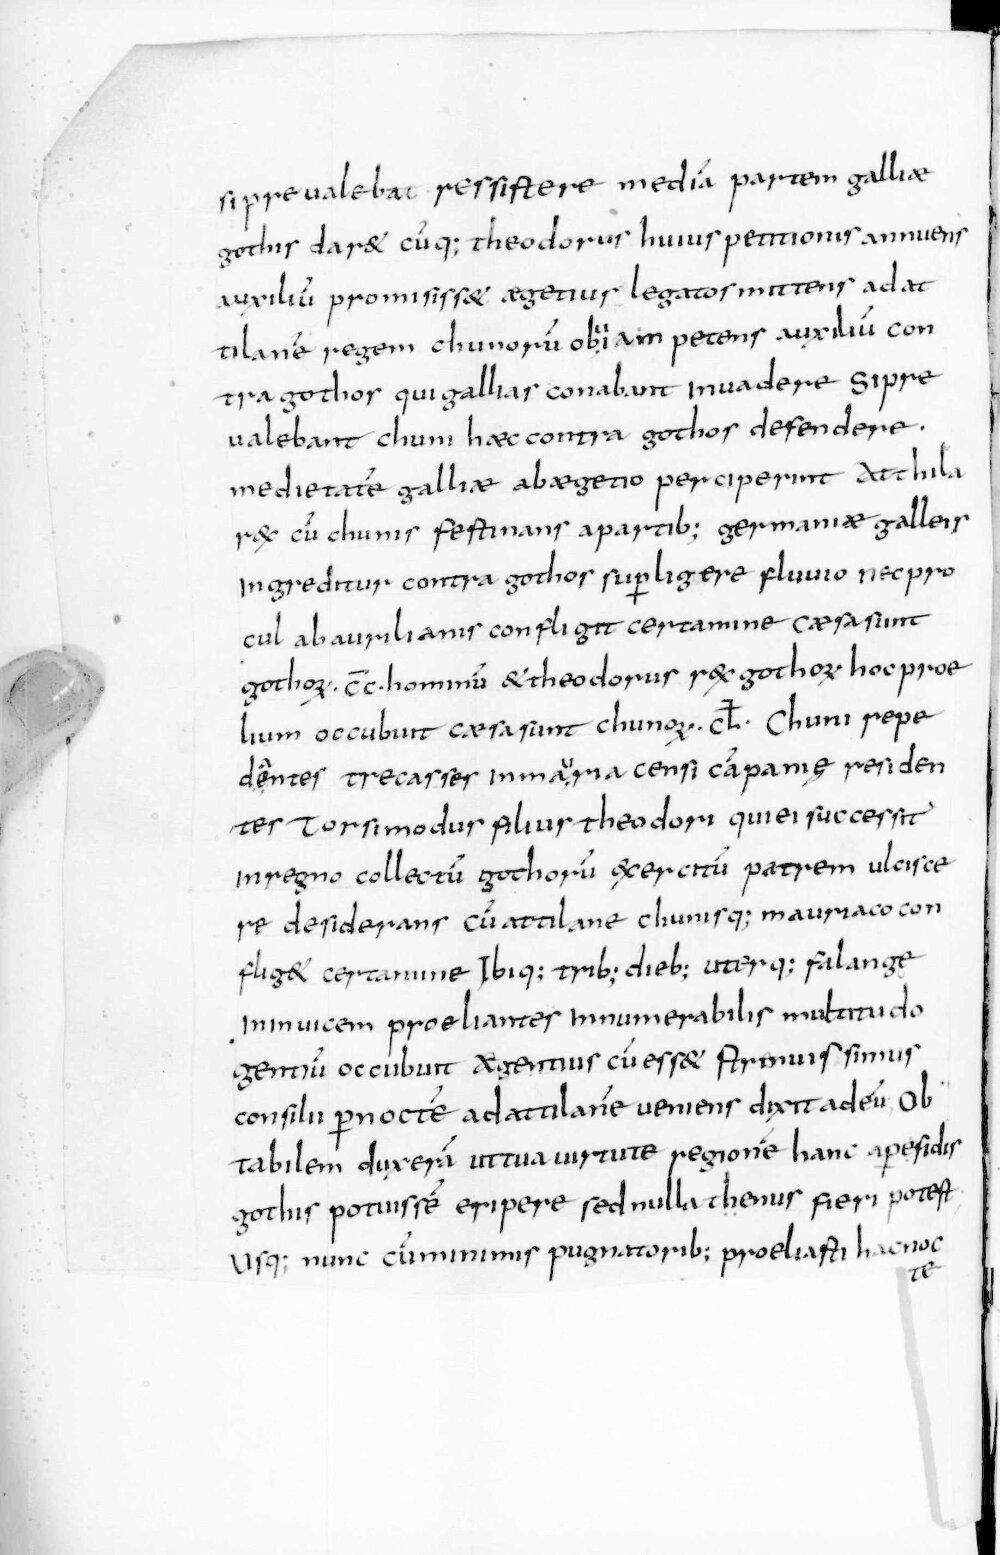 si prevalebat ressistere mediā partem galliæ
gothis dar& cūq; theodorus huius petitionis annuens
auxiliū promisiss& ægetius legatos mittens ad at
tilanē regem chunorū obuiam petens auxiliū con
tra gothos qui gallias conabant invadere Si pre
valebant chuni hæc contra gothos defendere.
medietatē galliæ ab ægetio perciperint Atthila
r&x cū chunis festinans a partib; germaniæ galleis
Ingreditur contra gothos suꝑ ligere fluuio nec pro
cul ab aurilianis confligit certamine cæsa sunt
gothoꝝ. c̄c. hominū & theodorus r&x gothoꝝ hoc proe
lium occubuit cæsa sunt chunoꝝ. cL̄. Chuni repe
dentes trecasses in mauria censi cāpanię residen
tes Torsimodus filius theodori qui ei successit
in regno collectū gothorū &xercitū patrem ulcisce
re desiderans cū attilane chunisq; mauriaco con
flig& certamine Ibiq; trib; dieb; uterq; falange
In inuicem proeliantes Innumerabilis multitudo
gentiū occubuit Ægentius cū ess& strenuissimus
consilii ꝑ noctē ad attilanē veniens dixit ad eū Ob
tabilem duxerā ut tua virtute regionē hanc a ꝑfidis
gothis potuissē eripere sed nullathenus fieri potest
Usq; nunc cū minimis pugnatorib; proeliasti hac noc
te